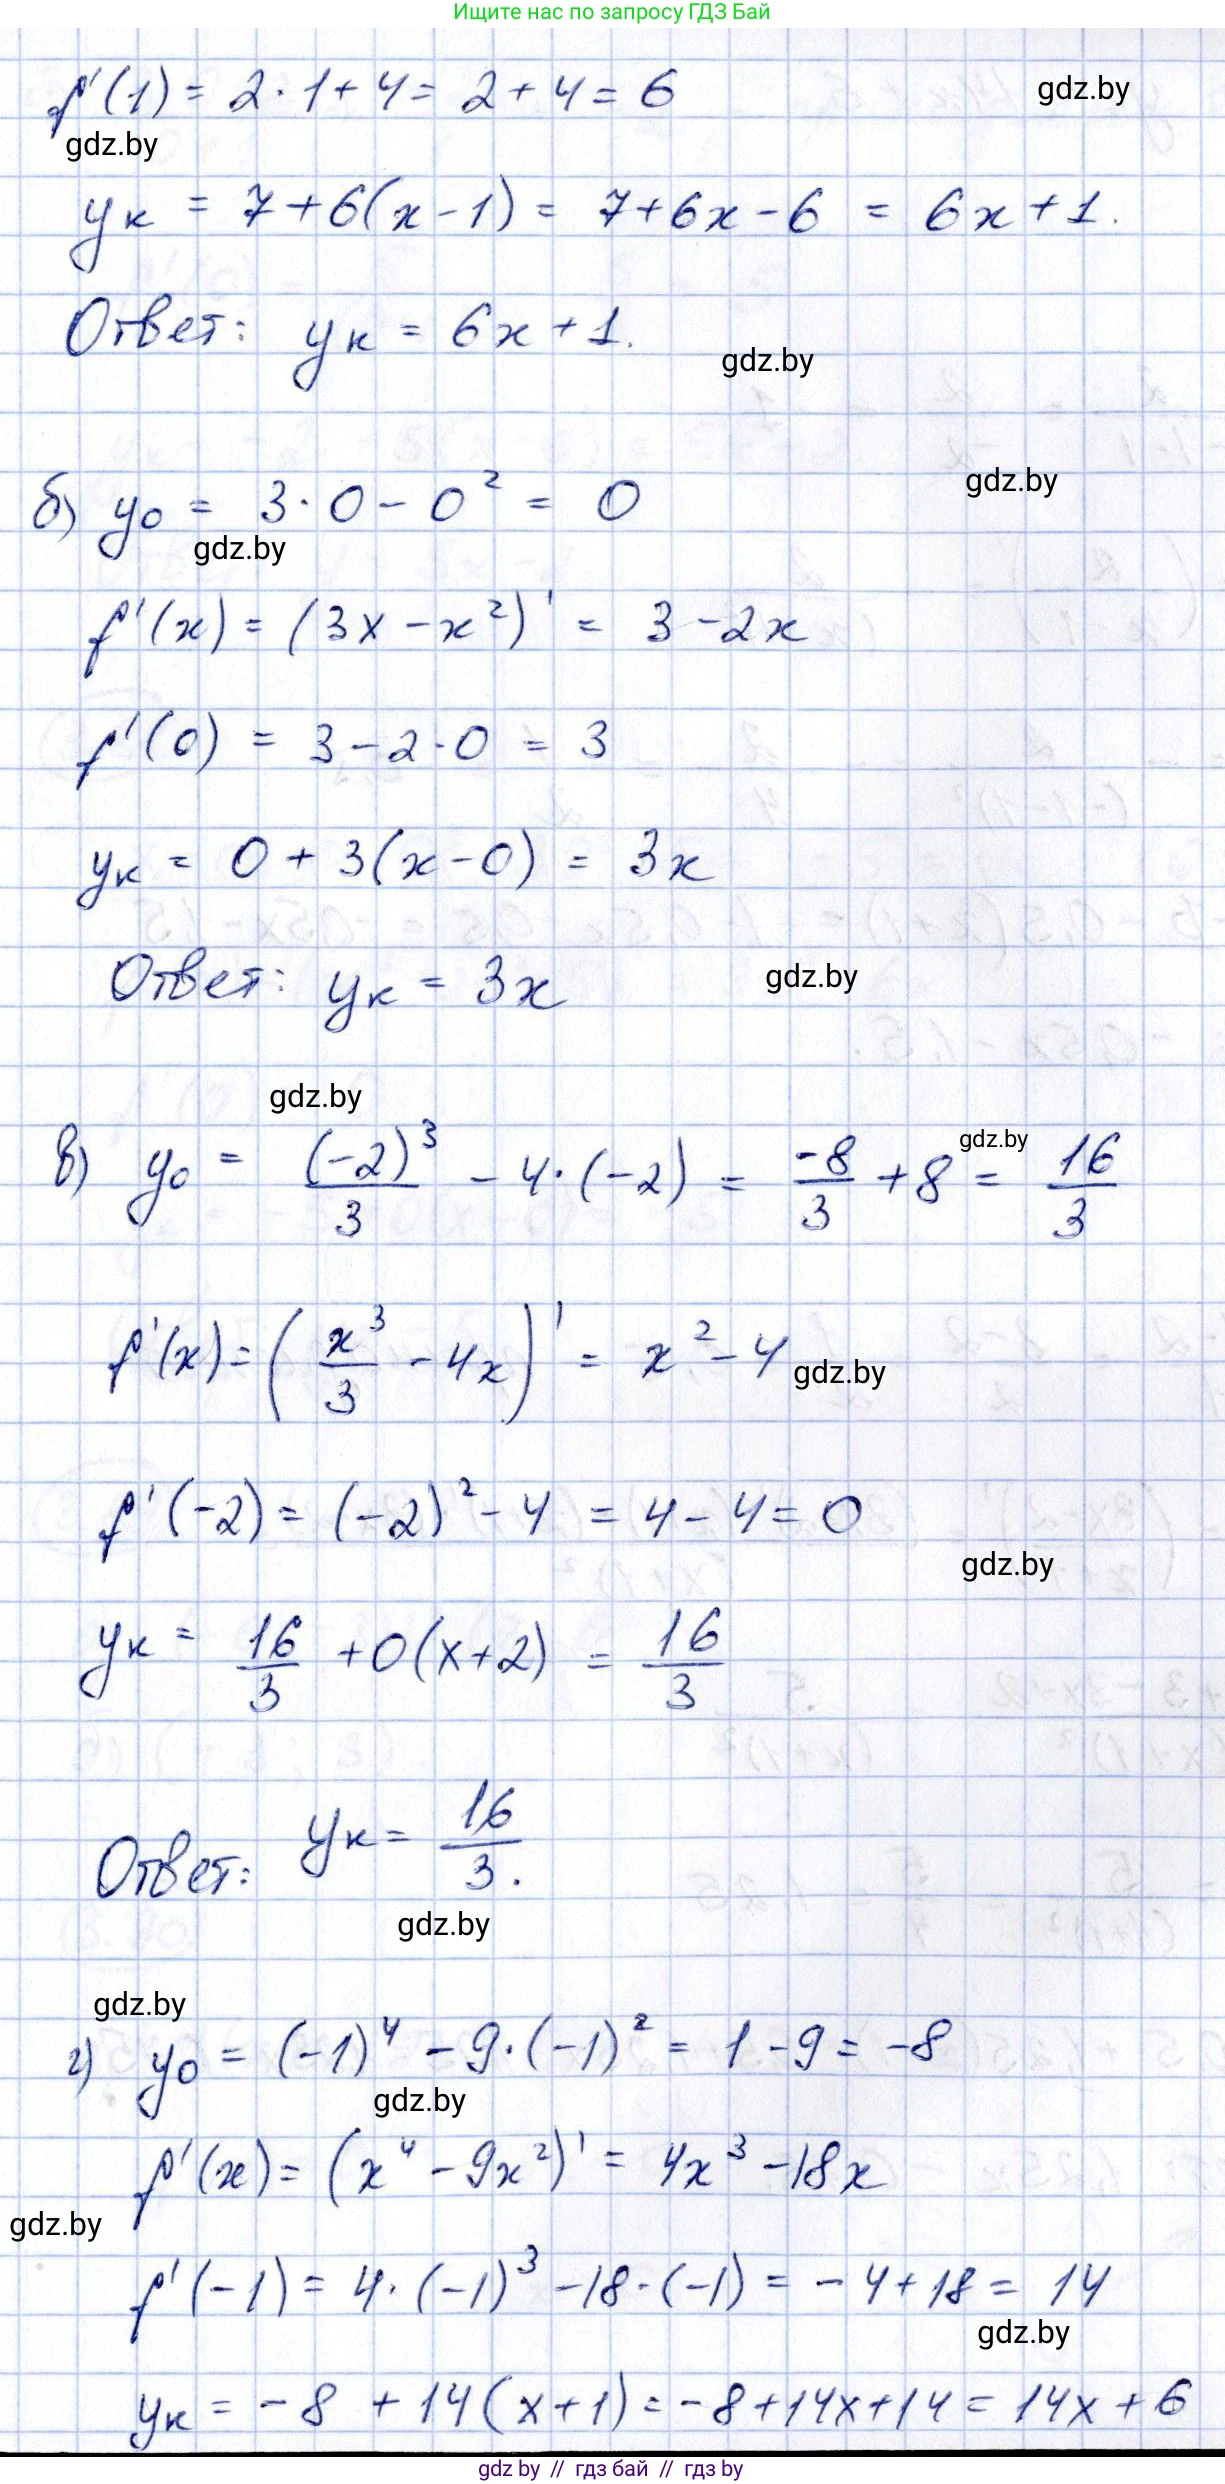 Ищите нас по запросу ГДЗ Бай
f'(1) = 2·1+4 = 2+4 = 6
gdz.by
gdz.by
yк = 7+6(x-1) = 7+6x-6 = 6x+1.
Ответ: yк = 6x+1.
gdz.by
gdz.by
б) y₀ = 3·0-0² = 0
gdz.by
f'(x) = (3x-x²)' = 3-2x
f'(0) = 3-2·0 = 3
yк = 0+3(x-0) = 3x
Ответ: yк = 3x
gdz.by
gdz.by
в) y₀ = (-2)³/3 - 4·(-2) = -8/3 + 8 = 16/3
gdz.by
f'(x) = (x³/3 - 4x)' = x²-4
gdz.by
f'(-2) = (-2)²-4 = 4-4 = 0
gdz.by
yк = 16/3 + 0(x+2) = 16/3
Ответ: yк = 16/3.
gdz.by
gdz.by
г) y₀ = (-1)⁴ - 9·(-1)² = 1-9 = -8
gdz.by
f'(x) = (x⁴-9x²)' = 4x³-18x
gdz.by
f'(-1) = 4·(-1)³-18·(-1) = -4+18 = 14
gdz.by
yк = -8 + 14(x+1) = -8+14x+14 = 14x+6
gdz by // гдз бай // гдз by